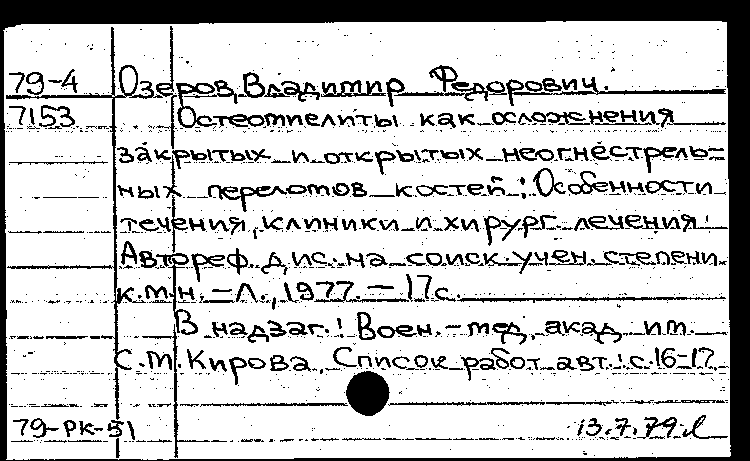 79-4 Озеров, Владимир Федорович.
7153 Остеомиелиты как осложнения
закрытых и открытых неогнестрель=
ных переломов костей: Особенности
течения, клиники и хирург. лечения:
Автореф. дис. на соиск. учен. степени
к.м.н. - Л., 1977. - 17с.
В надзаг.: Воен.-мед. акад. им.
С.М. Кирова. Список работ авт.: с.16-17
79-РК-51 13.7.79